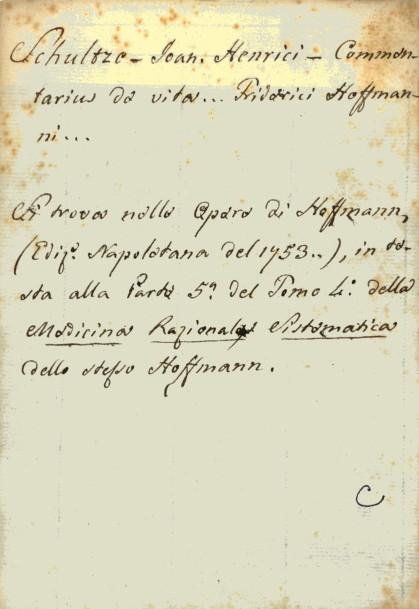 Schultze - Joan. Henrici - Commen-
tarius de vita... Friderici Hoffman-
ni...
Si trova nelle Opere di Hoffmann,
(Ediz.e Napoletana del 1753..), in te-
sta alla Parte 5.a del Tomo 4.o della
Medicina Razionale Sistematica
dello stesso Hoffmann.
C